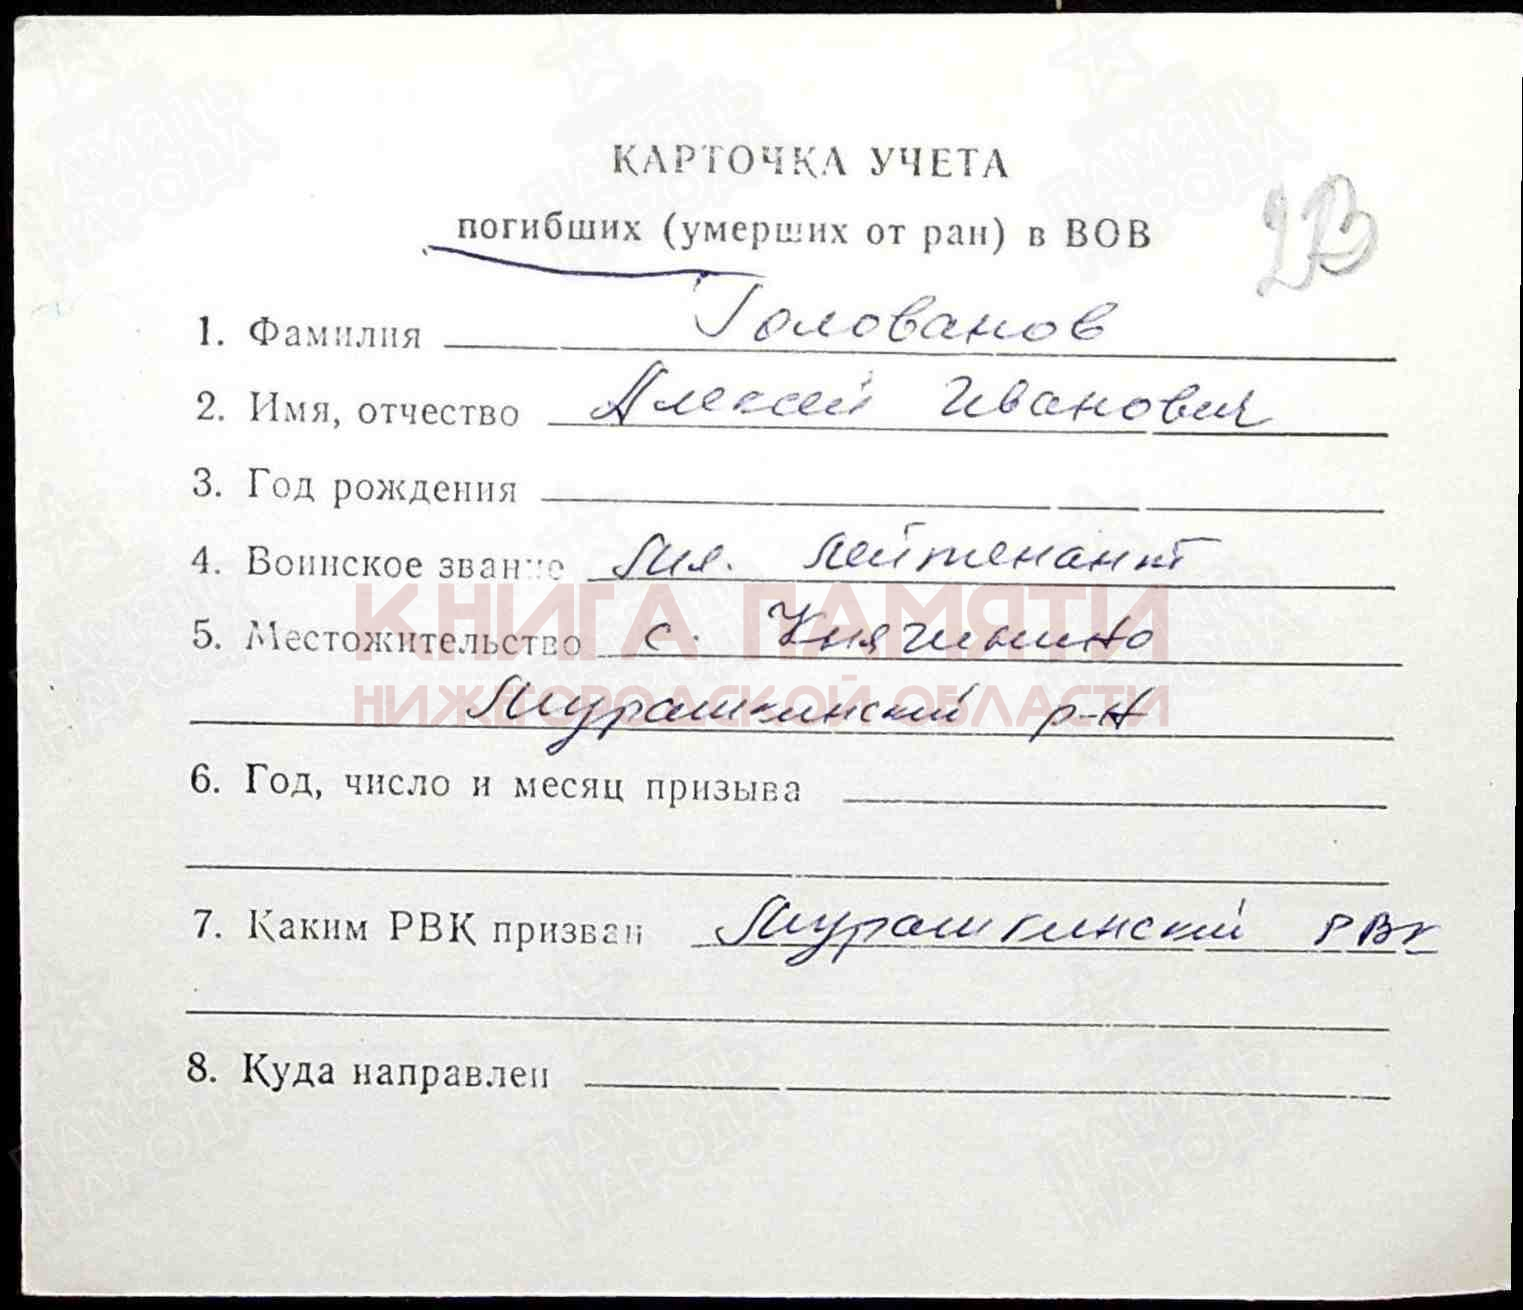 КАРТОЧКА УЧЕТА
погибших (умерших от ран) в ВОВ
1. Фамилия Голованов
2. Имя, отчество Алексей Иванович
3. Год рождения
4. Воинское звание Мл. лейтенант
5. Местожительство с. Княгинино
Мурашкинский р-н
КНИГА ПАМЯТИ
НИЖЕГОРОДСКОЙ ОБЛАСТИ
6. Год, число и месяц призыва
7. Каким РВК призван Мурашкинский РВК
8. Куда направлен
ПАМЯТЬ НАРОДА